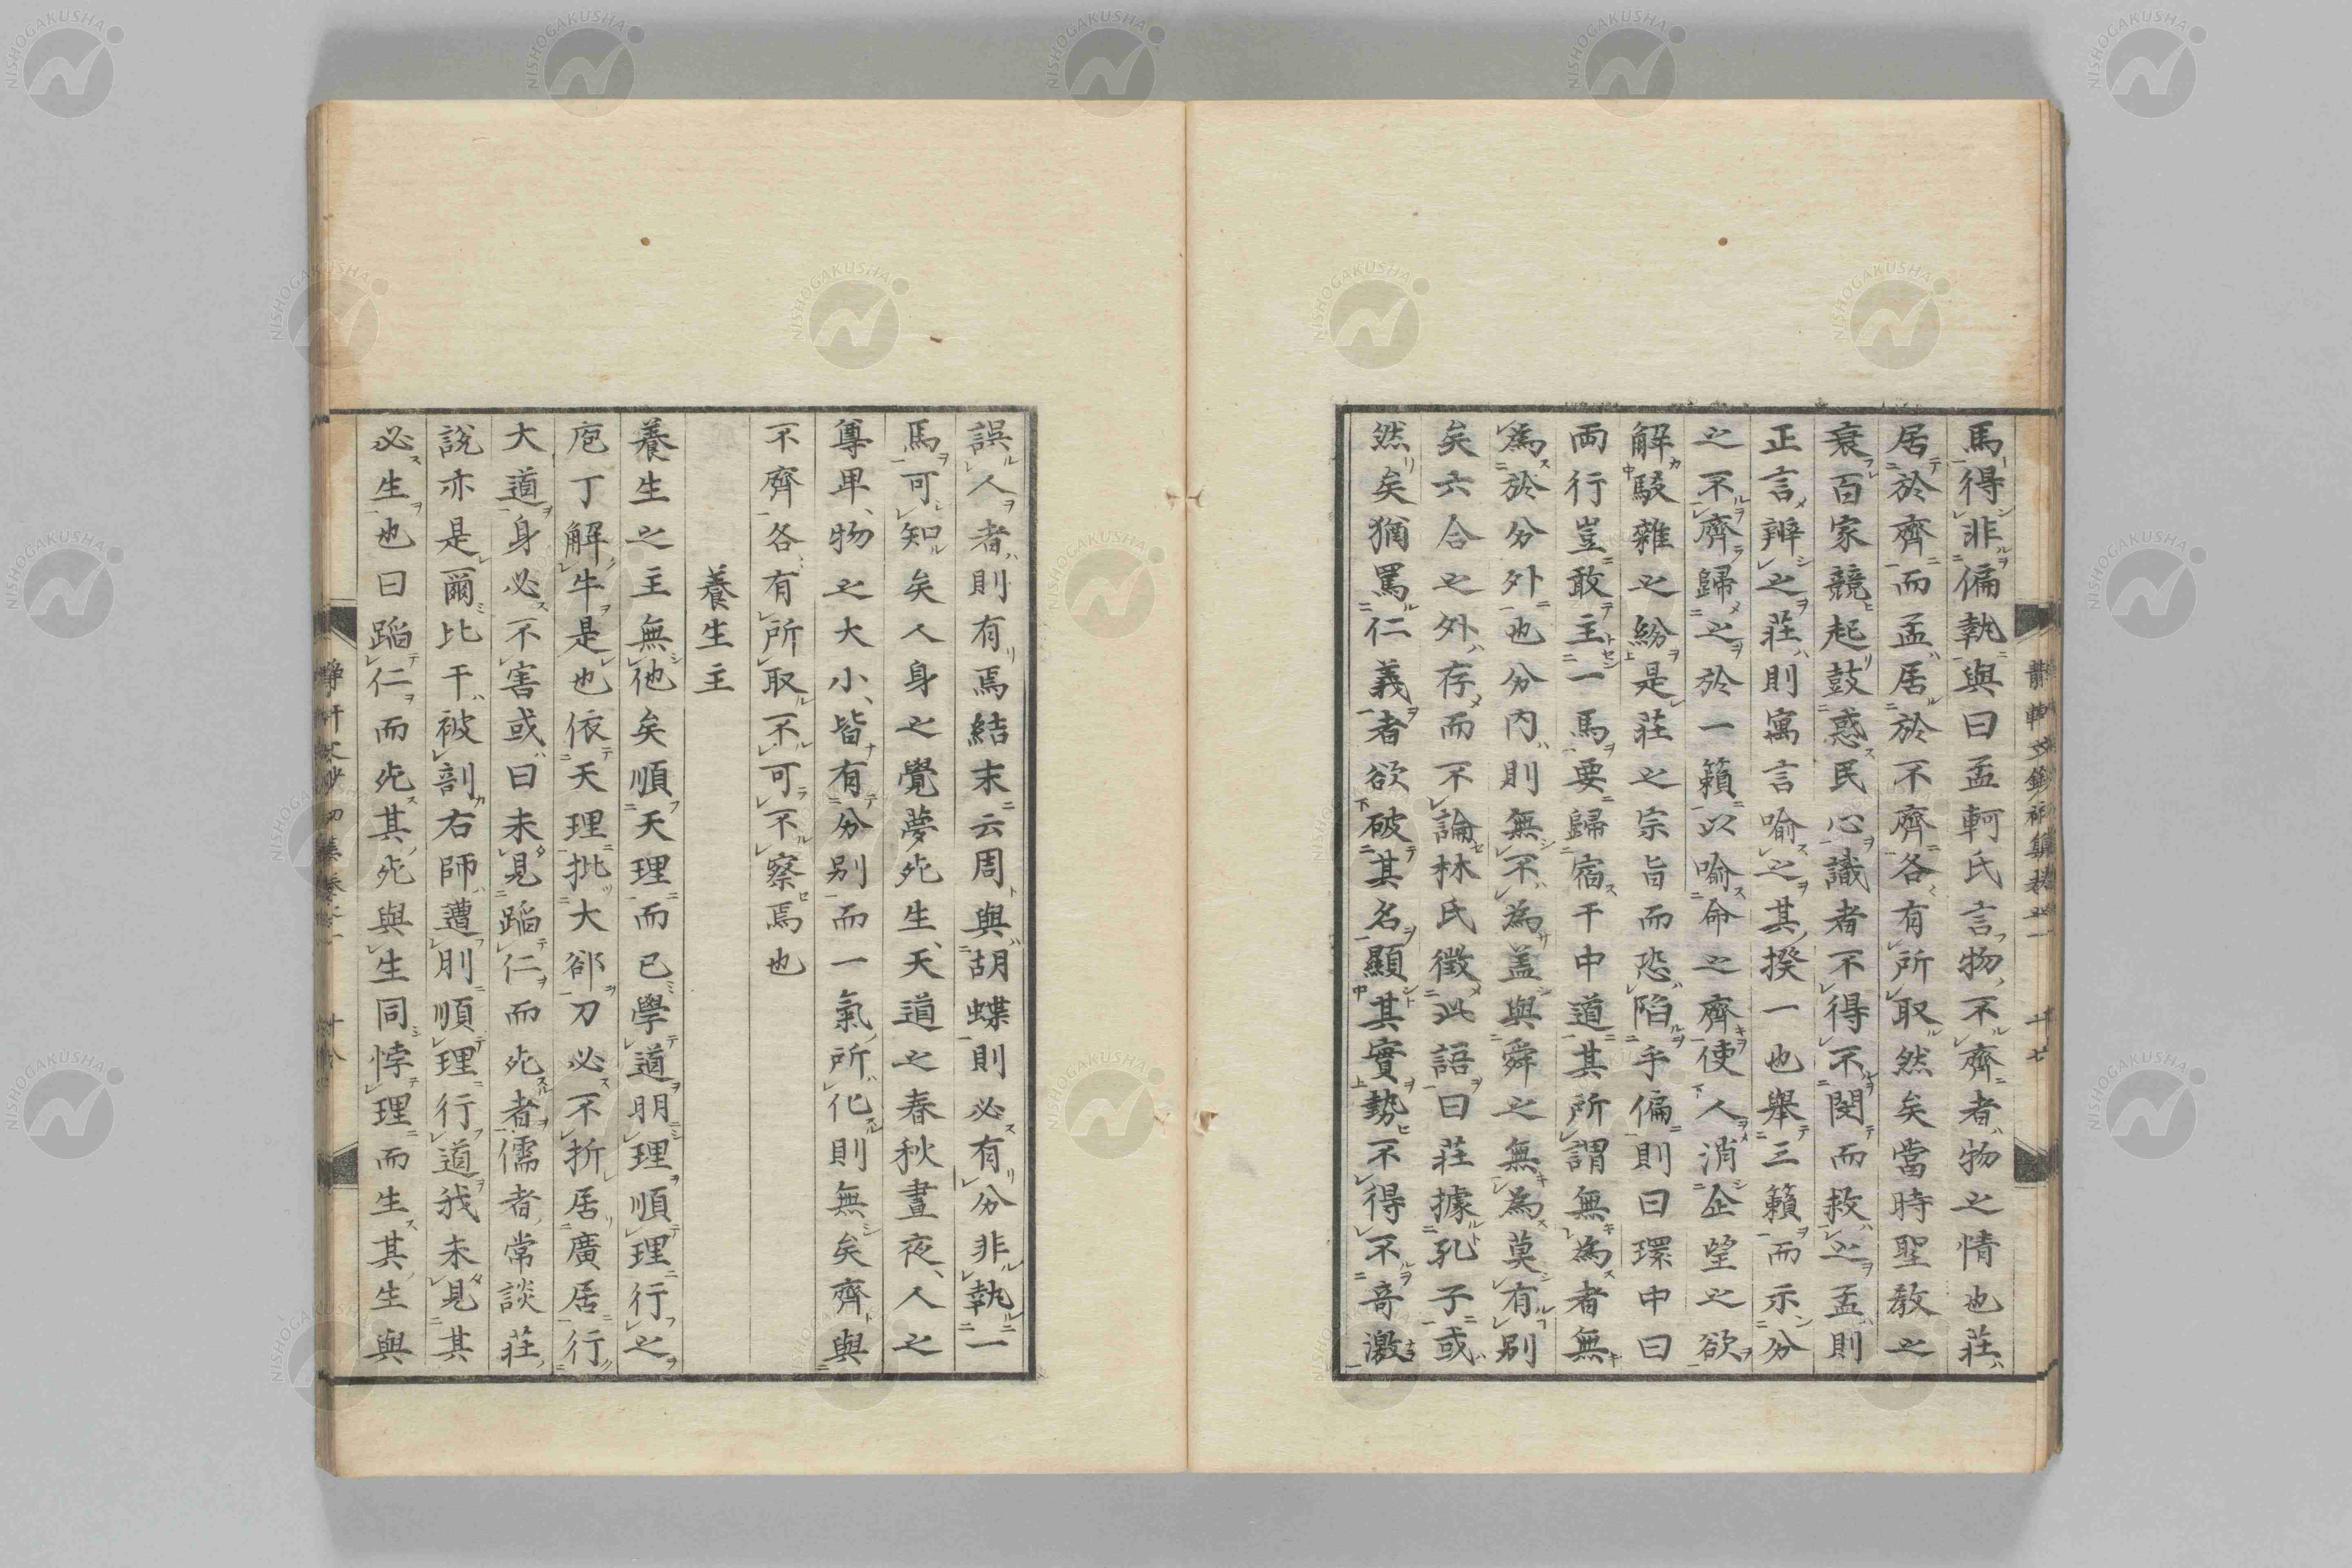 馬得非偏執與曰孟軻氏言物不齊者物之情也莊
居於齊而孟居於不齊各有所取然矣當時聖教之
衰百家競起鼓惑民心識者不得不閔而救之孟則
正言辨之莊則寓言喻之其揆一也舉三籟而示分
之不齊歸之於一籟以喻命之齊使人消企望之欲
解駁雜之紛是莊之宗旨而恐陷乎偏則曰環中曰
両行豈敢主一馬要歸宿于中道其所謂無為者無
為於分外也分内則無不為盖與舜之無為莫有別
矣六合之外存而不論林氏徴此語曰莊據孔子或
然矣猶罵仁義者欲破其名顯其實勢不得不奇激
誤人者則有焉結末云周與胡蝶則必有分非執一
馬可知矣人身之覺夢死生天道之春秋晝夜人之
尊卑物之大小皆有分別而一氣所化則無矣齊與
不齊各有所取不可不察焉也
養生主
養生之主無他矣順天理而已學道明理順理行之
庖丁解牛是也依天理批大郤刀必不折居廣居行
大道身必不害或曰未見蹈仁而死者儒者常談莊
說亦是爾比干被剖右師遭刖順理行道我未見其
必生也曰蹈仁而死其死與生同悖理而生其生與